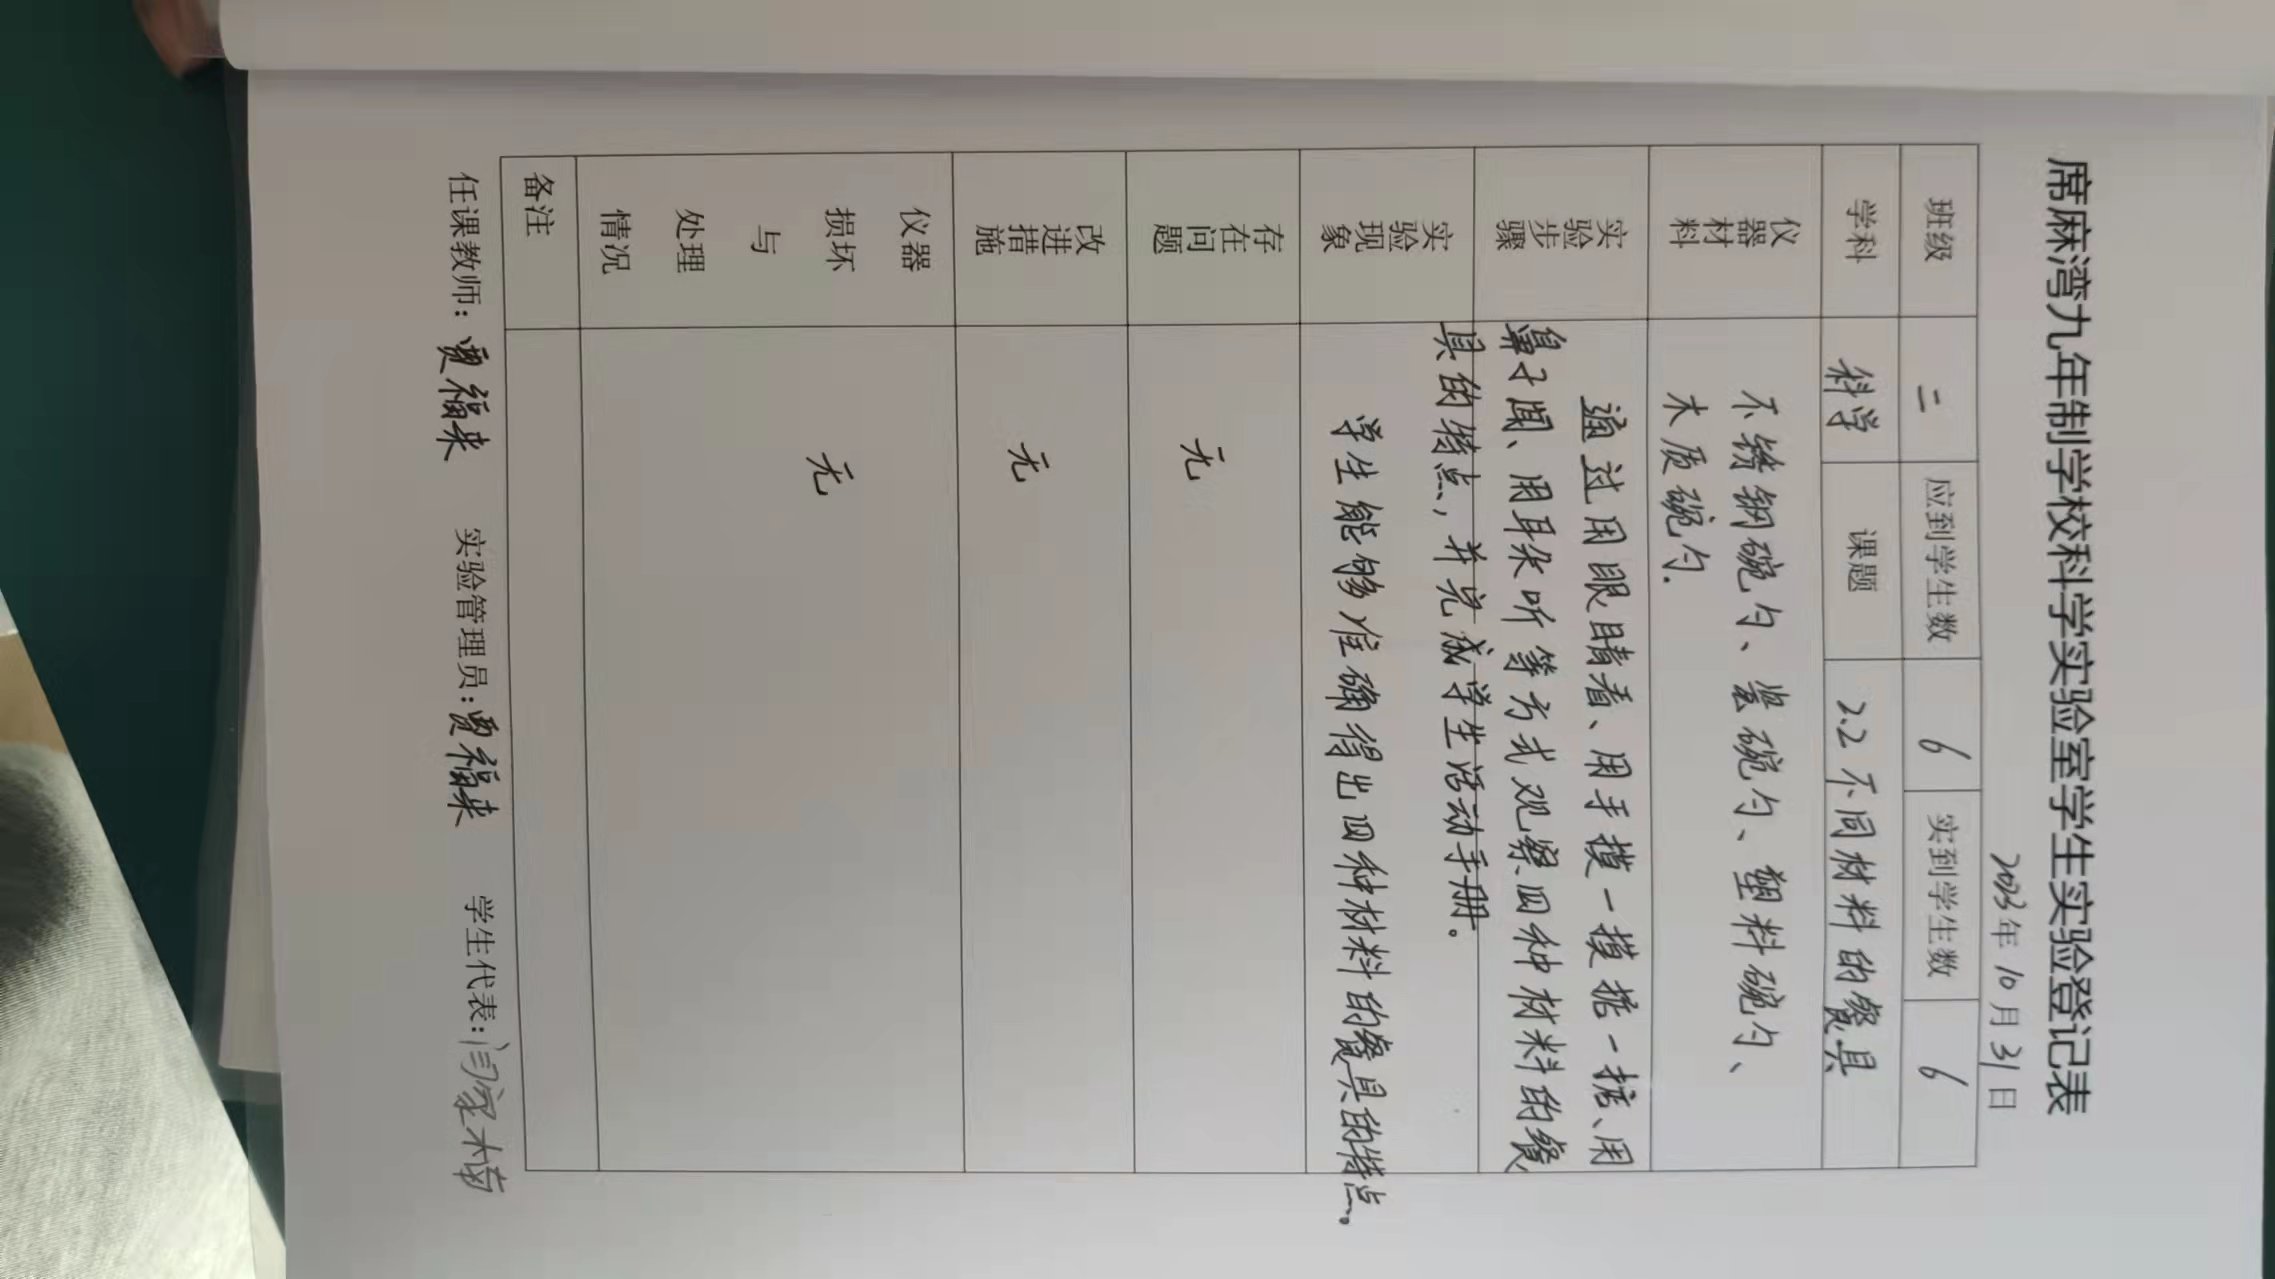 席麻湾九年制学校科学实验室学生实验登记表
2023年10月31日
班级 二 应到学生数 6 实到学生数 6
学科 科学 课题 2.2不同材料的餐具
仪器材料
不锈钢碗勺、瓷碗勺、塑料碗勺、
木质碗勺.
实验步骤
通过用眼睛看、用手摸一摸掂一掂、用
鼻子闻、用耳朵听等方式观察四种材料的餐
具的特点,并完成学生活动手册。
实验现象
学生能够准确得出四种材料的餐具的特点。
存在问题
无
改进措施
无
仪器
损坏
与
处理
情况
无
备注
任课教师:贾福来 实验管理员:贾福来 学生代表:闫家楠